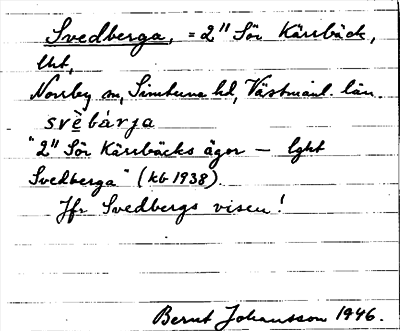 Svedberga, = 2" Sör Kärrbäck,
lht,
Norrby sn, Simtuna hd, Västmanl. län.
svèbárja
"2" Sör Kärrbäcks ägor — lght
Svedberga" (kb 1938).
Jfr Svedbergs visen!
Bernt Johansson 1946.